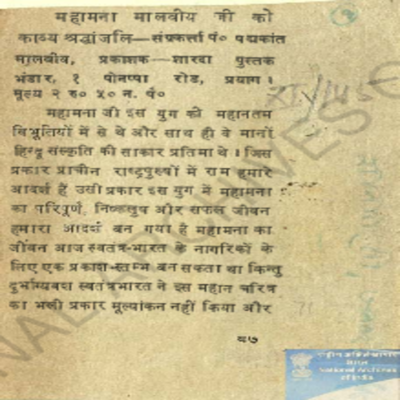 महामना मालवीय जी को
काव्य श्रद्धांजलि—संग्रकर्त्ता पं० पद्मकांत
मालवीय, प्रकाशक—शारदा पुस्तक
भंडार, १ पोनप्पा रोड, प्रयाग।
मूल्य २ रु० ५० न. पै०
महामना जी इस युग की महानतम
विभूतियों में से थे और साथ ही वे मानों
हिन्दू संस्कृति की साकार प्रतिमा थे। जिस
प्रकार प्राचीन राष्ट्रपुरुषों में राम हमारे
आदर्श हैं उसी प्रकार इस युग में महामना
का परिपूर्ण, निष्कलुष और सफल जीवन
हमारा आदर्श बन गया है महामना का
जीवन आज स्वतंत्र-भारत के नागरिकों के
लिए एक प्रकाश-स्तम्भ बन सकता था किन्तु
दुर्भाग्यवश स्वतंत्रभारत ने इस महान चरित्र
का भली प्रकार मूल्यांकन नहीं किया और
८७
राष्ट्रीय अभिलेखागार
भारत
National Archives
of India